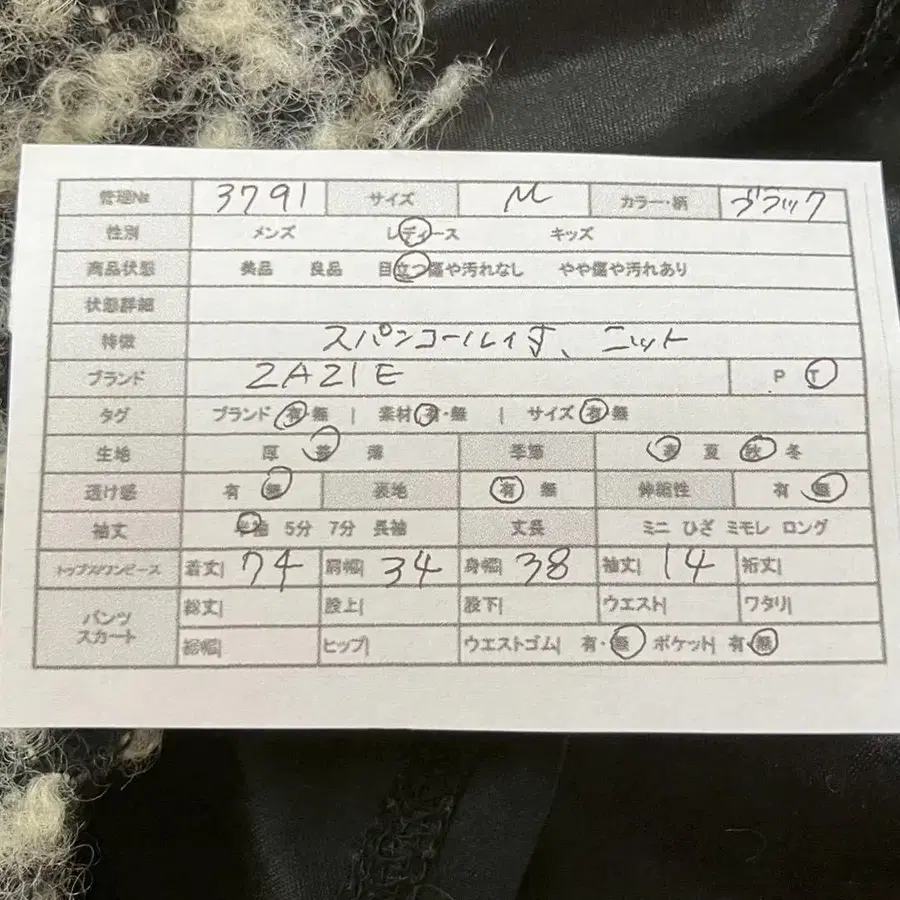 管理№ 3791 サイズ M カラー・柄 ブラック
性別 メンズ レディース キッズ
商品状態 美品 良品 目立つ傷や汚れなし やや傷や汚れあり
状態詳細
特徴 スパンコール付き、ニット
ブランド ZAZIE P T
タグ ブランド 有・無 | 素材 有・無 | サイズ 有・無
生地 厚 普 薄 季節 春 夏 秋 冬
透け感 有 無 裏地 有 無 伸縮性 有 無
袖丈 半袖 5分 7分 長袖 丈長 ミニ ひざ ミモレ ロング
トップス/ワンピース 着丈| 74 肩幅| 34 身幅| 38 袖丈| 14 裄丈|
パンツ スカート 総丈| 股上| 股下| ウエスト| ワタリ|
裾幅| ヒップ| ウエストゴム| 有・無 ポケット| 有・無